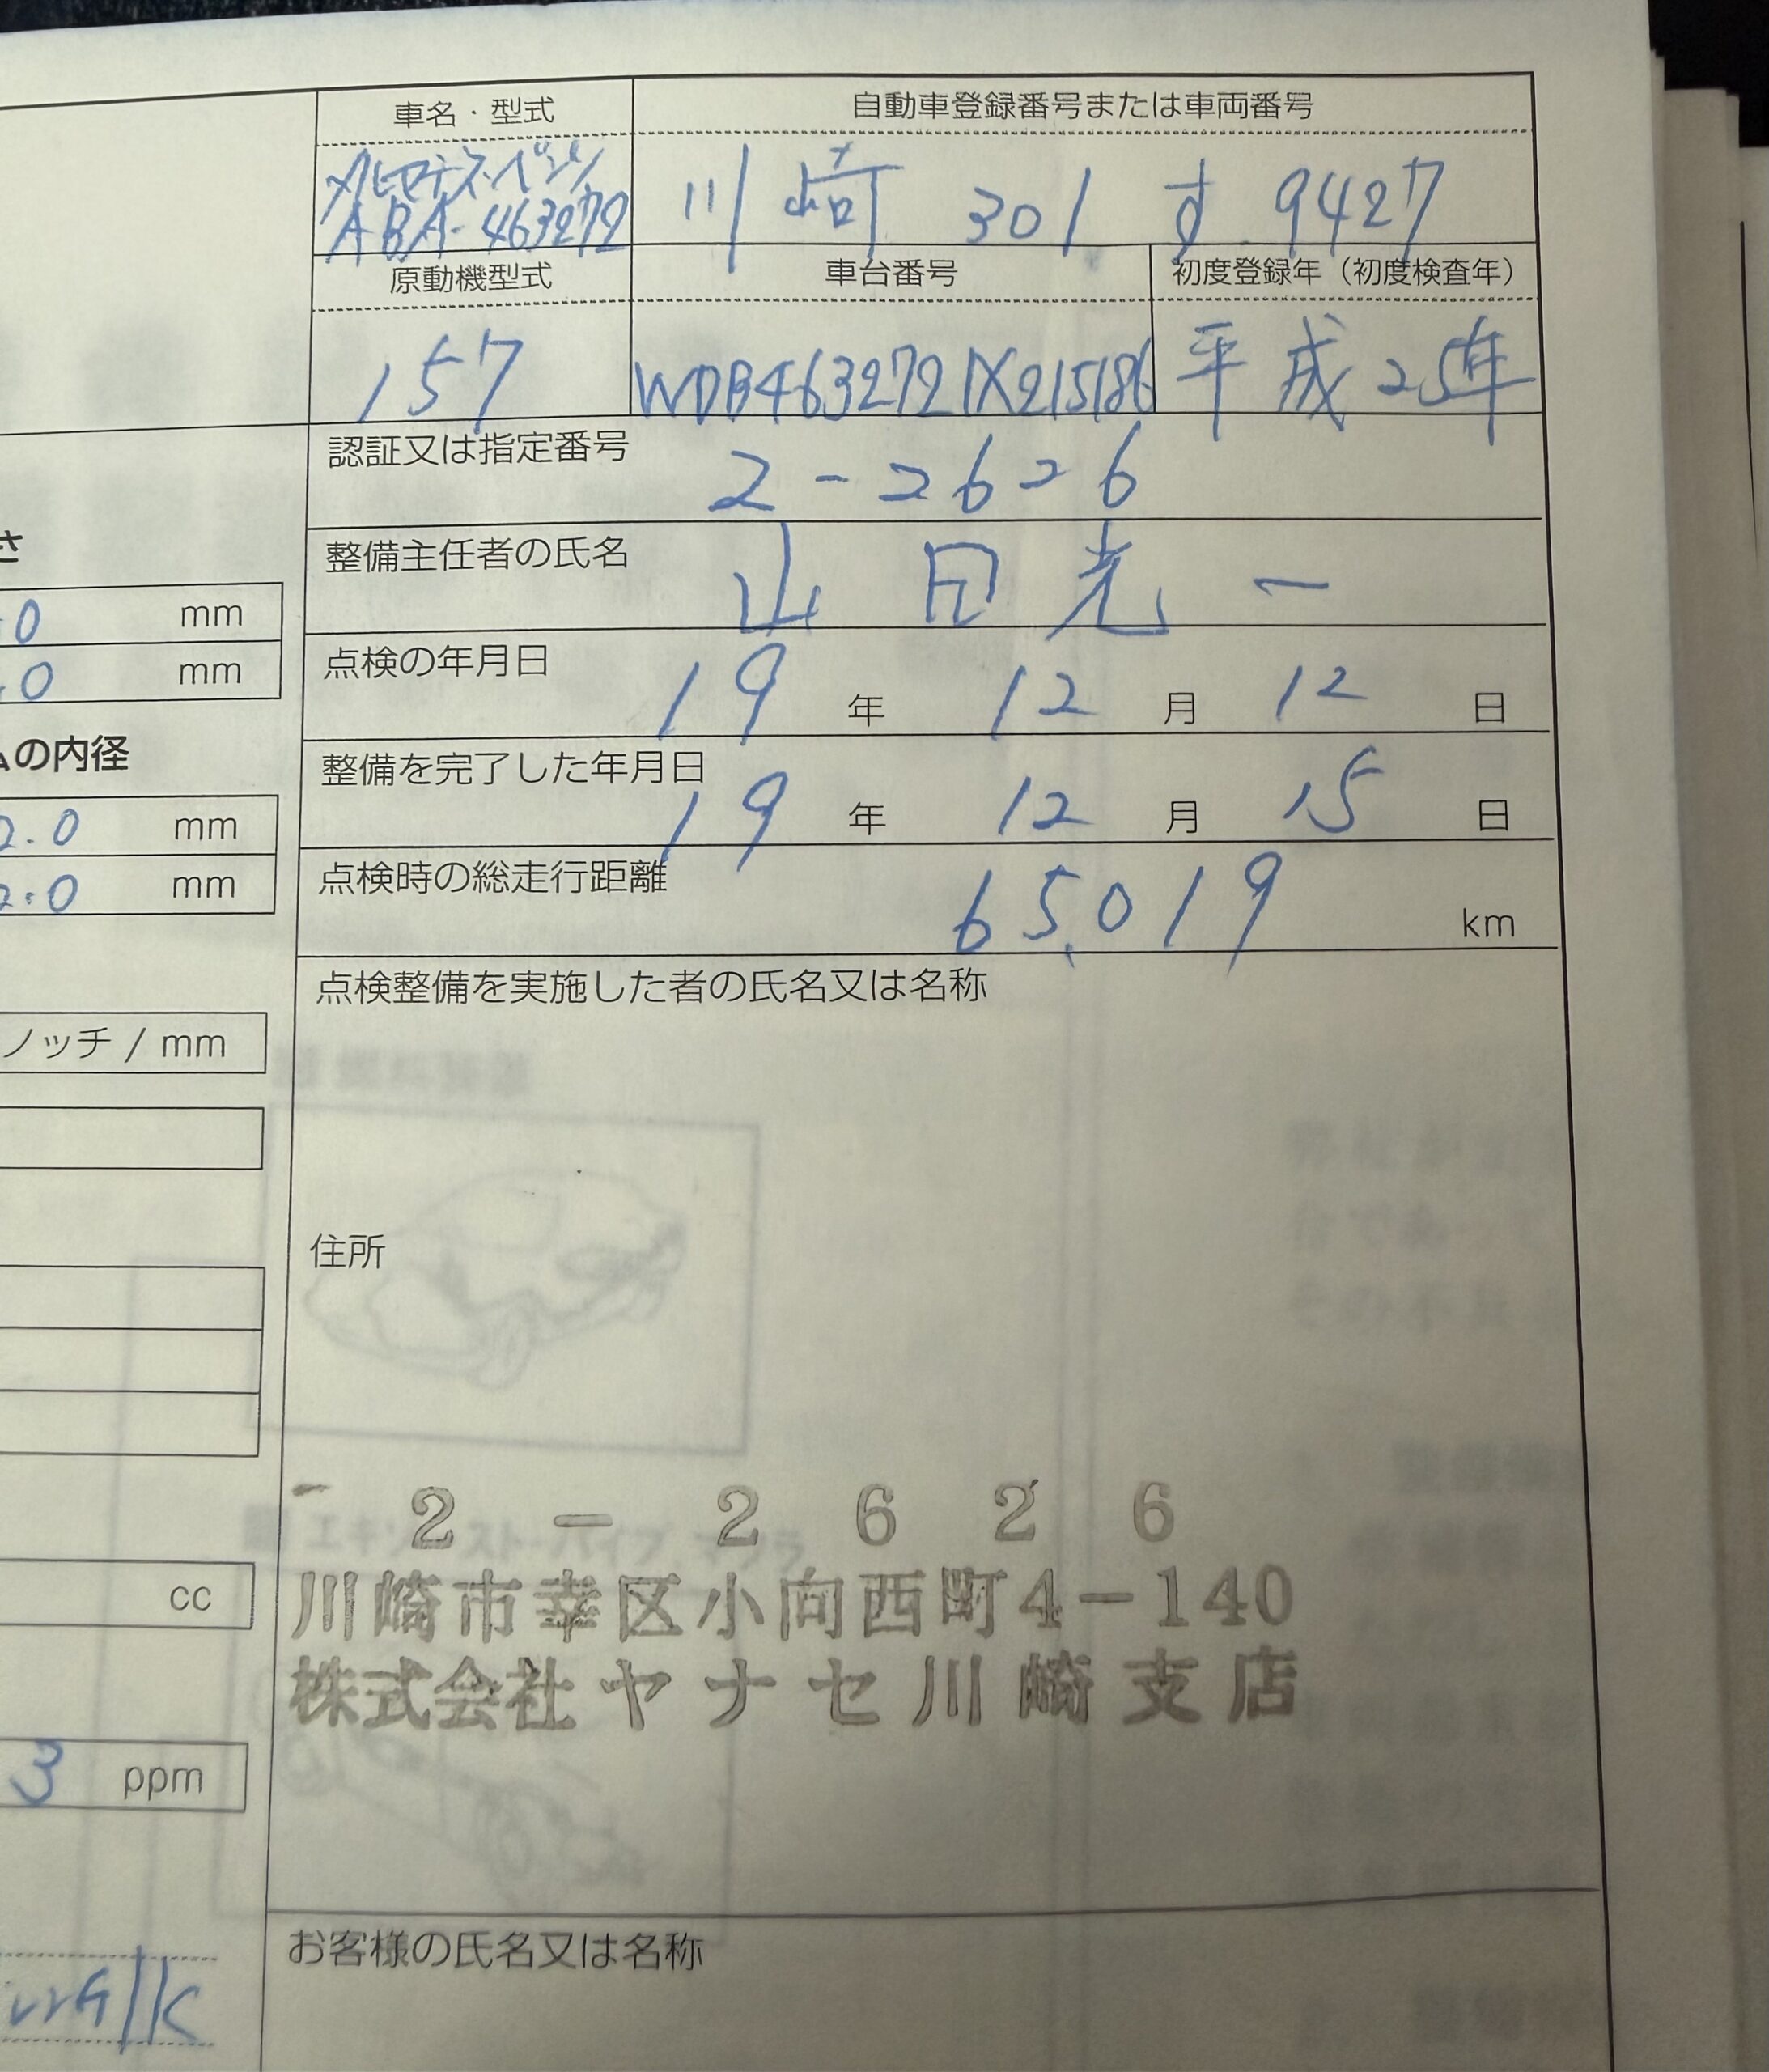 車名・型式
自動車登録番号または車両番号
メルセデス・ベンツ
ABA-463272
川崎 301 す 9427
原動機型式
車台番号
初度登録年（初度検査年）
157
WDB4632721X215186
平成25年
認証又は指定番号
2-2626
整備主任者の氏名
山田光一
点検の年月日
19 年 12 月 12 日
整備を完了した年月日
19 年 12 月 15 日
点検時の総走行距離
65,019 km
点検整備を実施した者の氏名又は名称
住所
2-2626
川崎市幸区小向西町4-140
株式会社ヤナセ川崎支店
お客様の氏名又は名称
さ
0 mm
.0 mm
の内径
2.0 mm
2.0 mm
ノッチ / mm
cc
3 ppm